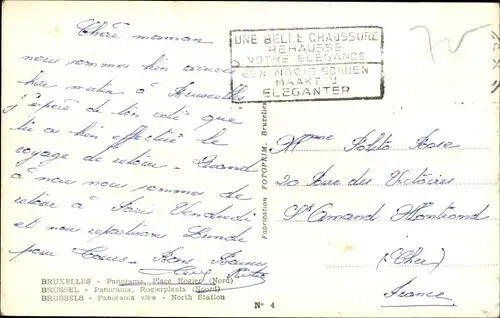 Chère maman
nous sommes bien arrivés
hier matin à Bruxelles
j'espère de ton côté que
tu as bien effectué le
voyage de retour. Quand
à nous nous sommes de
retour à Paris Vendredi
et nous repartirons Lundi
pour Tours. Bons Baisers
UNE BELLE CHAUSSURE
REHAUSSE
VOTRE ELEGANCE
EEN MOOIE SCHOEN
MAAKT U
ELEGANTER
Fabrication FOTOPRIM, Bruxelles
Mme
20 Rue des Victoires
St Amand Montrond
(Cher)
France
BRUXELLES - Panorama, Place Rogier (Nord)
BRUSSEL - Panorama, Rogierplaats (Noord)
BRUSSELS - Panorama view - North Station
N° 4